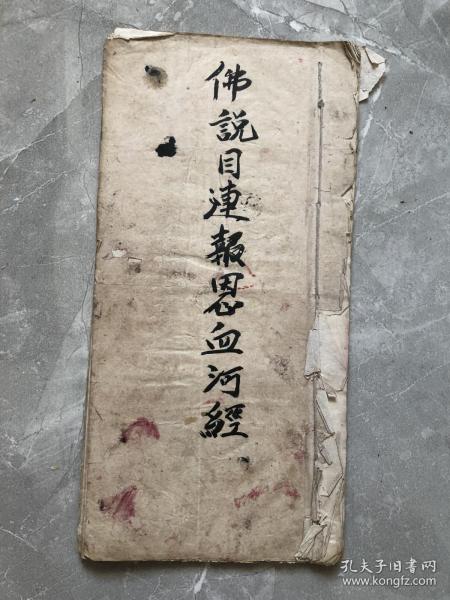 佛説目連報恩血河經
孔夫子旧书网
www.kongfz.com